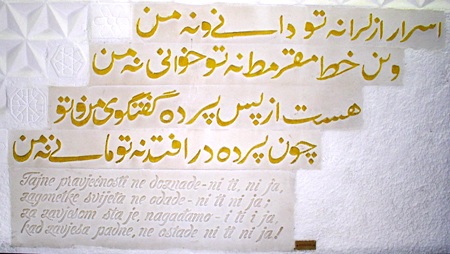 اسرار ازل را نه تو دانی و نه من
وین خط مقرمط نه تو خوانی نه من
هست از پس پرده گفتگوی من و تو
چون پرده در افتد نه تو مانی نه من
Tajne pravječnosti ne doznade - ni ti, ni ja,
zagonetke svijeta ne odade - ni ti ni ja;
za zavjesom sta je, nagađamo - i ti i ja,
kad zavjesa padne, ne ostade ni ti ni ja!